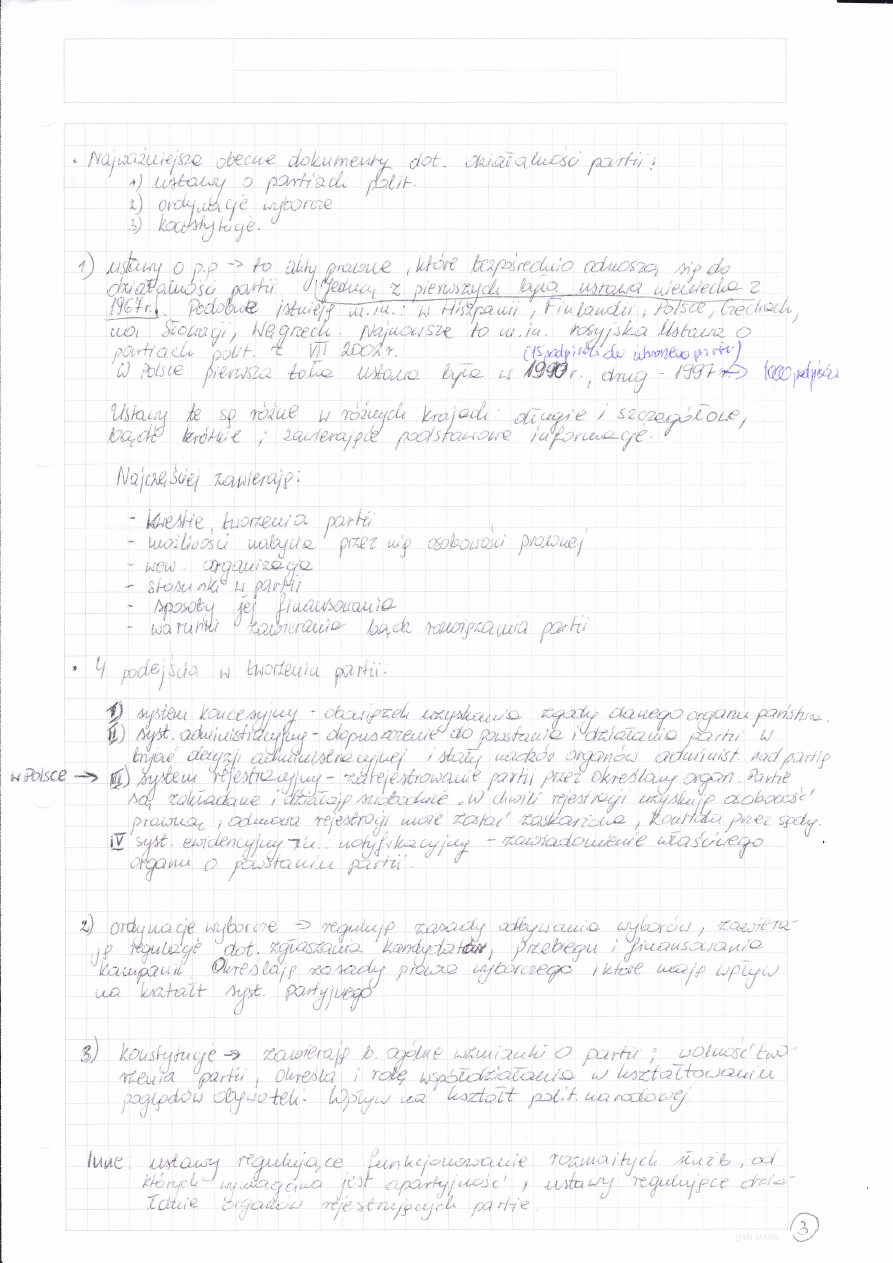 • Najważniejsze obecne dokumenty dot. działalności partii:
1) ustawy o partiach polit.
2) ordynacje wyborcze
3) konstytucje.
1) ustawy o p.p → to akty prawne, które bezpośrednio odnoszą się do
działalności partii. Jedną z pierwszych była ustawa niemiecka z
1967r. Podobne istnieją m.in.: w Hiszpanii, Finlandii, Polsce, Czechach,
na Słowacji, Węgrzech. Najnowsze to m.in. rosyjska Ustawa o
partiach polit. z VII 2002r.
(15 podpisów do utworzenia partii)
W Polsce pierwsza taka ustawa była w 1990r., drug - 1997r → 1000 podpisów
Ustawy te są różne w różnych krajach: długie i szczegółowe,
bądź krótkie i zawierające podstawowe informacje.
Najczęściej zawierają:
- kwestie tworzenia partii
- możliwości nabycia przez nią osobowości prawnej
- wew. organizacja
- stosunki w partii
- sposoby jej finansowania
- warunki zawierania bądź rozwiązania partii
• 4 podejścia w tworzeniu partii:
I) system koncesyjny - obowiązek uzyskania zgody danego organu państwa.
II) syst. administracyjny - dopuszczenie do powstania i działania partii w
trybie decyzji administracyjnej i stały nadzór organów administ. nad partią
w Polsce → III) system rejestracyjny - zarejestrowanie partii przez określony organ. Partie
są zakładane i działają swobodnie. W chwili rejestracji uzyskują osobowość
prawną, odmowa rejestracji może zostać zaskarżona, kontrola przez sądy.
IV syst. ewidencyjny zw.: notyfikacyjny - zawiadomienie właściwego
organu o powstaniu partii.
2) ordynacje wyborcze → regulują zasady odbywania wyborów, zawiera-
ją regulacje dot. zgłaszania kandydatów, przebiegu i finansowania
kampanii. Określają zasady prawa wyborczego, które mają wpływ
na kształt syst. partyjnego
3) konstytucje → zawierają b. ogólne wzmianki o partii; wolność two-
rzenia partii, określa i rolę współdziałania w kształtowaniu
poglądów obywateli. Wpływ na kształt polit. narodowej
Inne: ustawy regulujące funkcjonowanie rozmaitych służb, od
których wymagana jest apartyjność, ustawy regulujące dzia-
łanie organów rejestrujących partie.
DAN-MARK
3